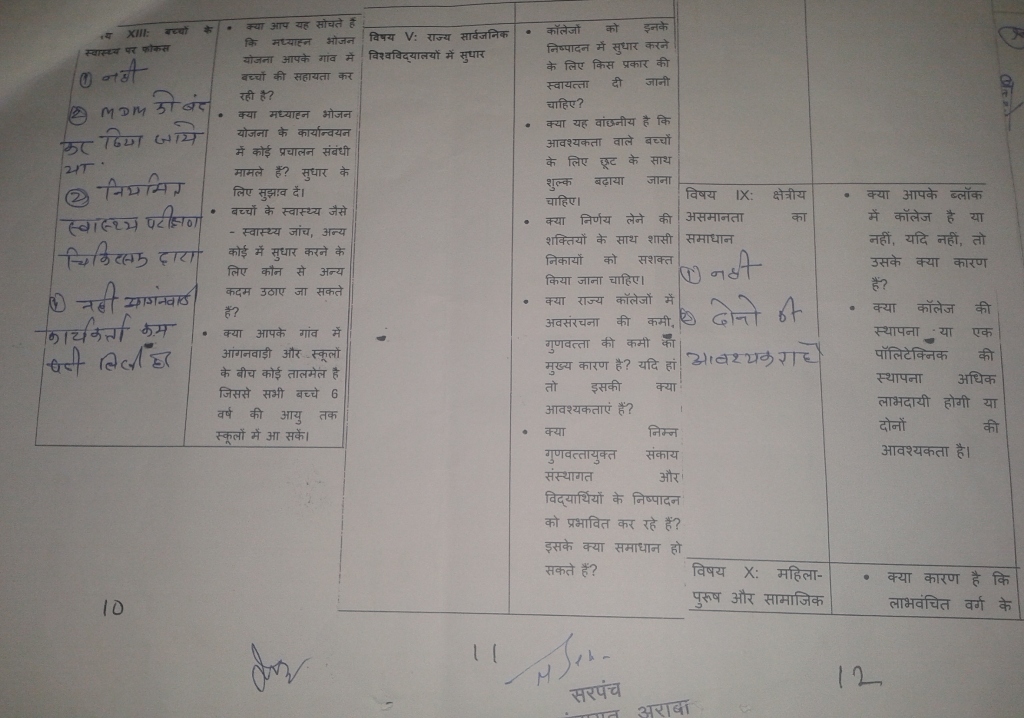 XIII: बच्चों के
स्वास्थ्य पर फोकस
① नही
② MDM को बंद
कर दिया जाये
या
② नियमित
स्वास्थ्य परीक्षण
चिकित्सक द्वारा
नही आगंनवाडी
कार्यकर्ता कम
• क्या आप यह सोचते हैं
कि मध्याह्न भोजन
योजना आपके गांव में
बच्चों की सहायता कर
रही है?
• क्या मध्याह्न भोजन
योजना के कार्यान्वयन
में कोई प्रचालन संबंधी
मामले हैं? सुधार के
लिए सुझाव दें।
• बच्चों के स्वास्थ्य जैसे
- स्वास्थ्य जांच, अन्य
कोई में सुधार करने के
लिए कौन से अन्य
कदम उठाए जा सकते
हैं?
• क्या आपके गांव में
आंगनवाड़ी और स्कूलों
के बीच कोई तालमेल है
जिससे सभी बच्चे 6
वर्ष की आयु तक
स्कूलों में आ सकें।
10
विषय V: राज्य सार्वजनिक
विश्वविद्यालयों में सुधार
• कॉलेजों को इनके
निष्पादन में सुधार करने
के लिए किस प्रकार की
स्वायत्ता दी जानी
चाहिए?
• क्या यह वांछनीय है कि
आवश्यकता वाले बच्चों
के लिए छूट के साथ
शुल्क बढ़ाया जाना
चाहिए।
• क्या निर्णय लेने की
शक्तियों के साथ शासी
निकायों को सशक्त
किया जाना चाहिए।
• क्या राज्य कॉलेजों में
अवसंरचना की कमी,
गुणवत्ता की कमी का
मुख्य कारण है? यदि हां
तो इसकी क्या
आवश्यकताएं हैं?
• क्या निम्न
गुणवत्तायुक्त संकाय
संस्थागत और
विद्यार्थियों के निष्पादन
को प्रभावित कर रहे हैं?
इसके क्या समाधान हो
सकते हैं?
11
सरपंच
अराबा
विषय IX: क्षेत्रीय
असमानता का
समाधान
① नही
② दोनो की
आवश्यकता है
• क्या आपके ब्लॉक
में कॉलेज है या
नहीं, यदि नहीं, तो
उसके क्या कारण
हैं?
• क्या कॉलेज की
स्थापना या एक
पॉलिटेक्निक की
स्थापना अधिक
लाभदायी होगी या
दोनों की
आवश्यकता है।
विषय X: महिला-
पुरूष और सामाजिक
• क्या कारण है कि
लाभवंचित वर्ग के
12